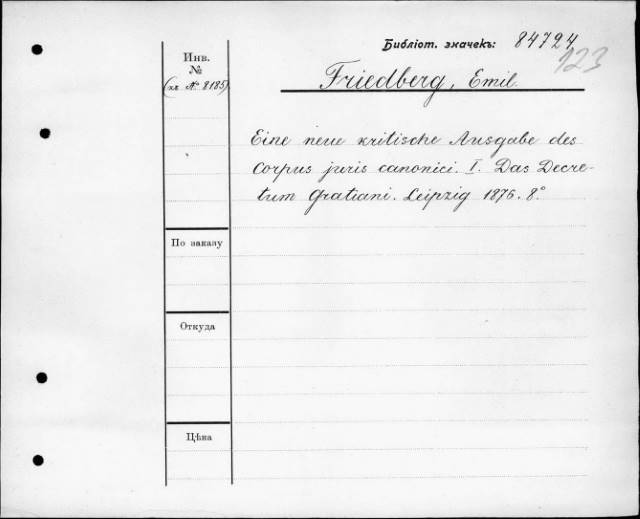 Библіот. значекъ: 84724
123
Инв.
№
(къ № 8185)
Friedberg, Emil.
Eine neue kritische Ausgabe des
Corpus juris canonici. I. Das Decre-
tum Gratiani. Leipzig 1876. 8°.
По заказу
Откуда
Цѣна